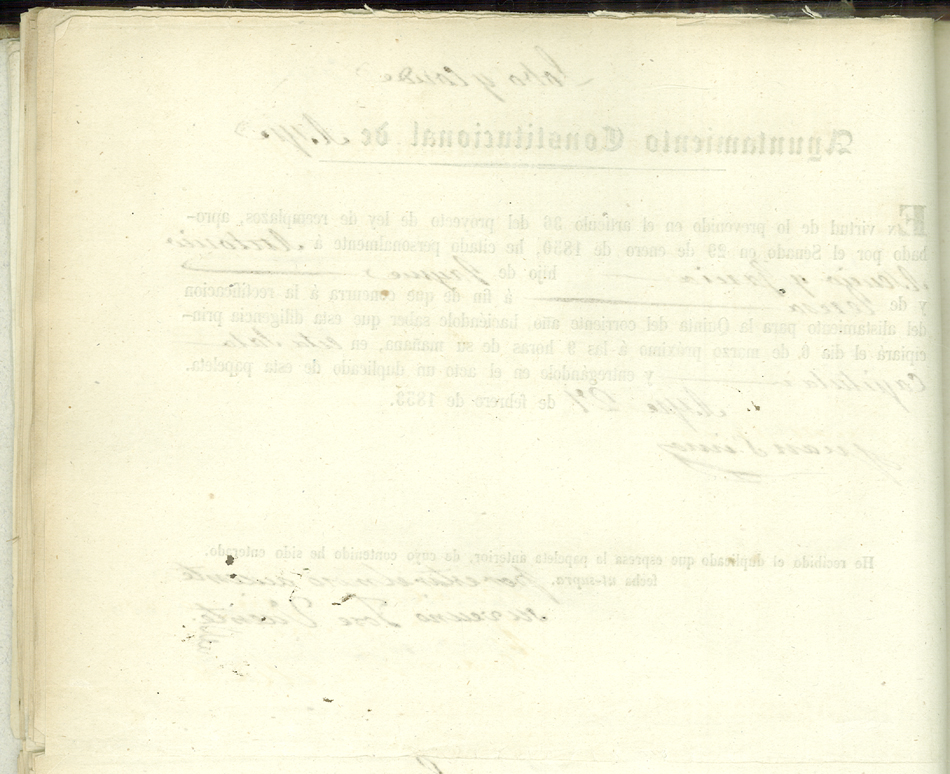 Ayuntamiento Constitucional de
EN virtud de lo prevenido en el artículo 36 del proyecto de ley de remplazos, apro-
bado por el Senado en 29 de enero de 1850, he citado personalmente á Antonio
y Garcia hijo de
y de Teresa á fin de que concurra á la rectificacion
del alistamiento para la Quinta del corriente año, haciéndole saber que esta diligencia prin-
cipiará el dia 6, de marzo próximo á las 9 horas de su mañana, en esta Sala
Capitular y entregándole en el acto un duplicado de esta papeleta.
de febrero de 1853.
Juan
He recibido el duplicado que espresa la papeleta anterior, de cuyo contenido he sido enterado.
fecha ut-supra. por estar el mozo ausente
su vecino José Vicente